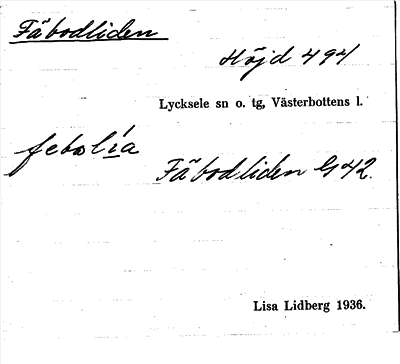 Fäbodliden
Höjd 494
Lycksele sn o. tg, Västerbottens l.
febolia
Fäbodliden G42.
Lisa Lidberg 1936.